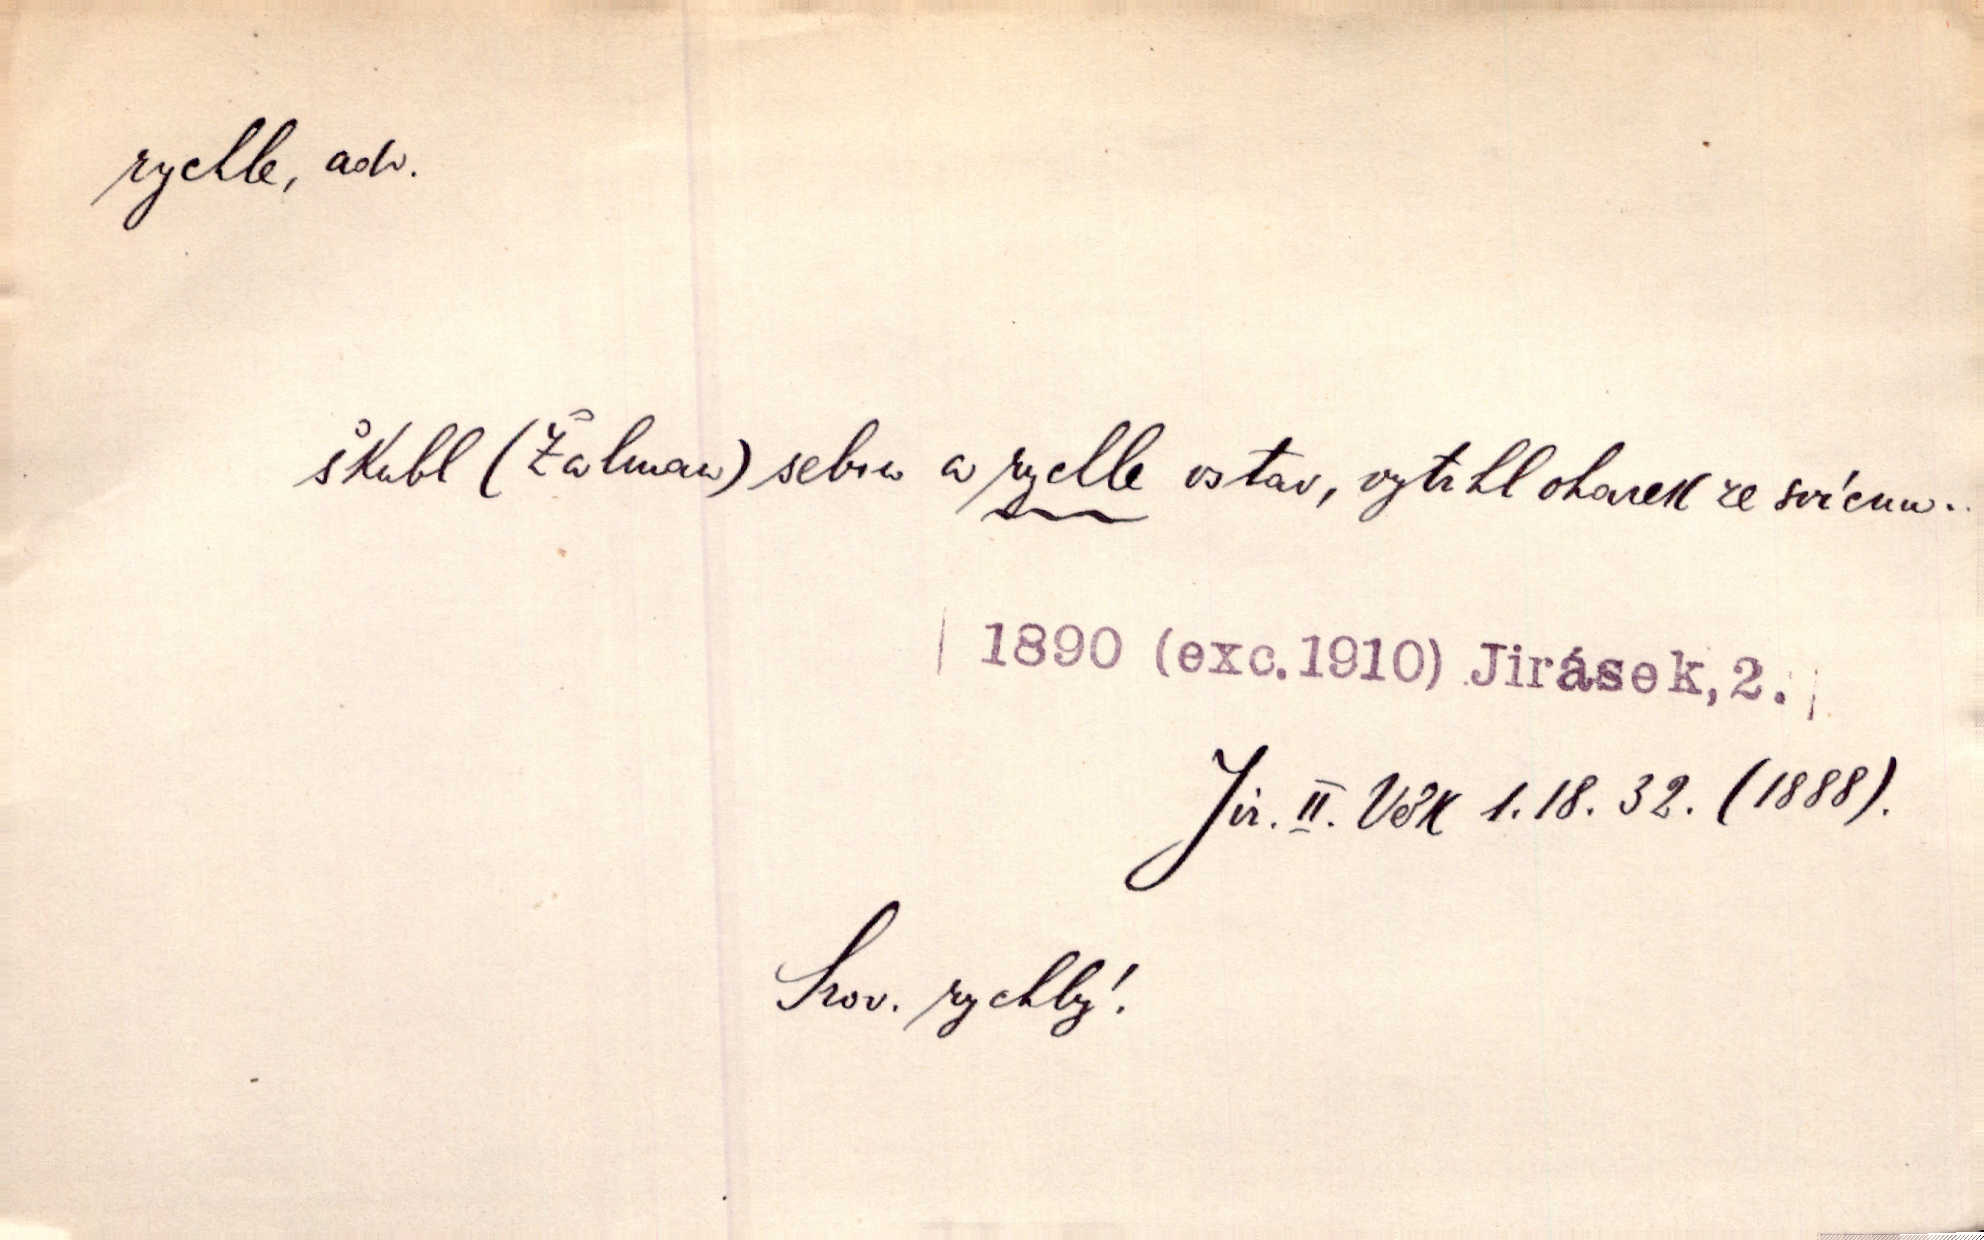 rychle, adv.
škubl (Žalman) sebou a rychle vstav, vytrhl oharek ze svícnu..
1890 (exc.1910) Jirásek, 2.
Jir. II. Věk 1. 18. 32. (1888).
Srov. rychlý!